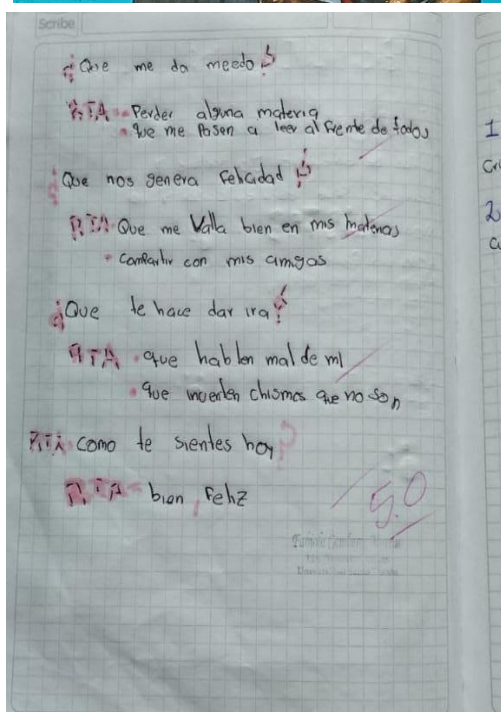 Scribe
¿Que me da meedo?
RTA - Perder alguna materia
• que me Pasen a leer al frente de todos
¿Que nos genera felicidad?
RTA • Que me Valla bien en mis materias
• compartir con mis amigos
¿Que te hace dar ira?
RTA • que hablen mal de mi
• que inventen chismes que no son
RTA como te sientes hoy?
RTA - bien, feliz
5.0
1
2